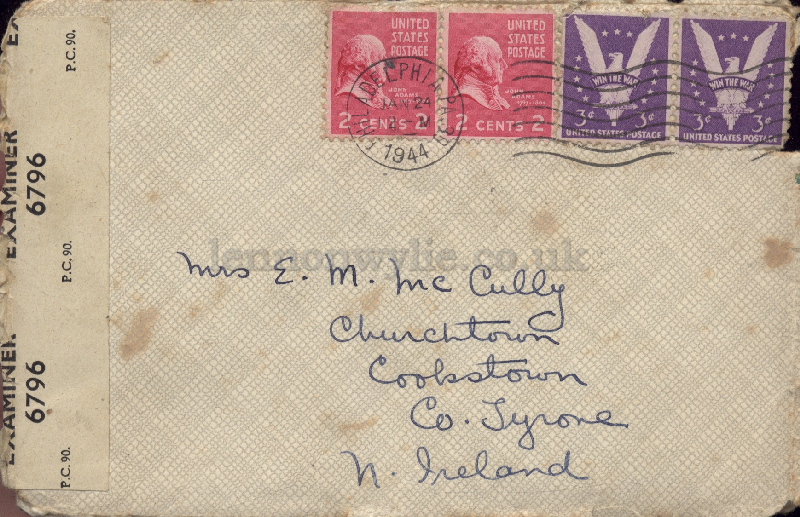 P.C. 90.
EXAMINER 6796
P.C. 90.
EXAMINER 6796
P.C. 90.
UNITED STATES POSTAGE
JOHN ADAMS
2 CENTS 2
UNITED STATES POSTAGE
JOHN ADAMS
2 CENTS 2
WIN THE WAR
3¢ 3¢
UNITED STATES POSTAGE
WIN THE WAR
3¢ 3¢
UNITED STATES POSTAGE
PHILADELPHIA, PA.
JAN 24
1944
lennonwylie.co.uk
Mrs E. M. McCully
Churchtown
Cookstown
Co. Tyrone
N. Ireland